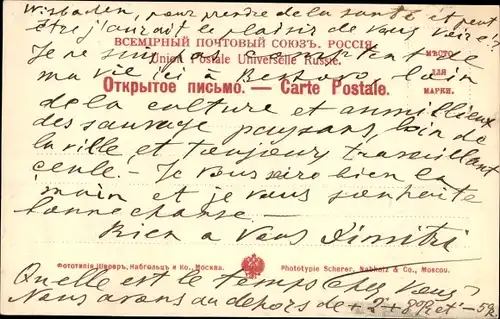 Wisbaden, pour prendre de la santé et peut
être j'aurait le plaisir de vous voire!
ВСЕМІРНЫЙ ПОЧТОВЫЙ СОЮЗЪ. РОССІЯ.
Je ne suis pas content de
Union Postale Universelle Russie.
МѢСТО
ДЛЯ
МАРКИ.
ma vie ici à loin
Открытое письмо. — Carte Postale.
de la culture et au millieux
des sauvage paysans, loin de
la ville et toujours travaillant
ceule. — Je vous sere bien la
main et je vous souhaite
bonne chance —
Bien a Vous Dimitri
Фототипія Шереръ, Набгольцъ и Ко., Москва.
Phototypie Scherer, Nabholz & Co., Moscou.
Quelle est le temps chez vous?
Nous avons au dehors de